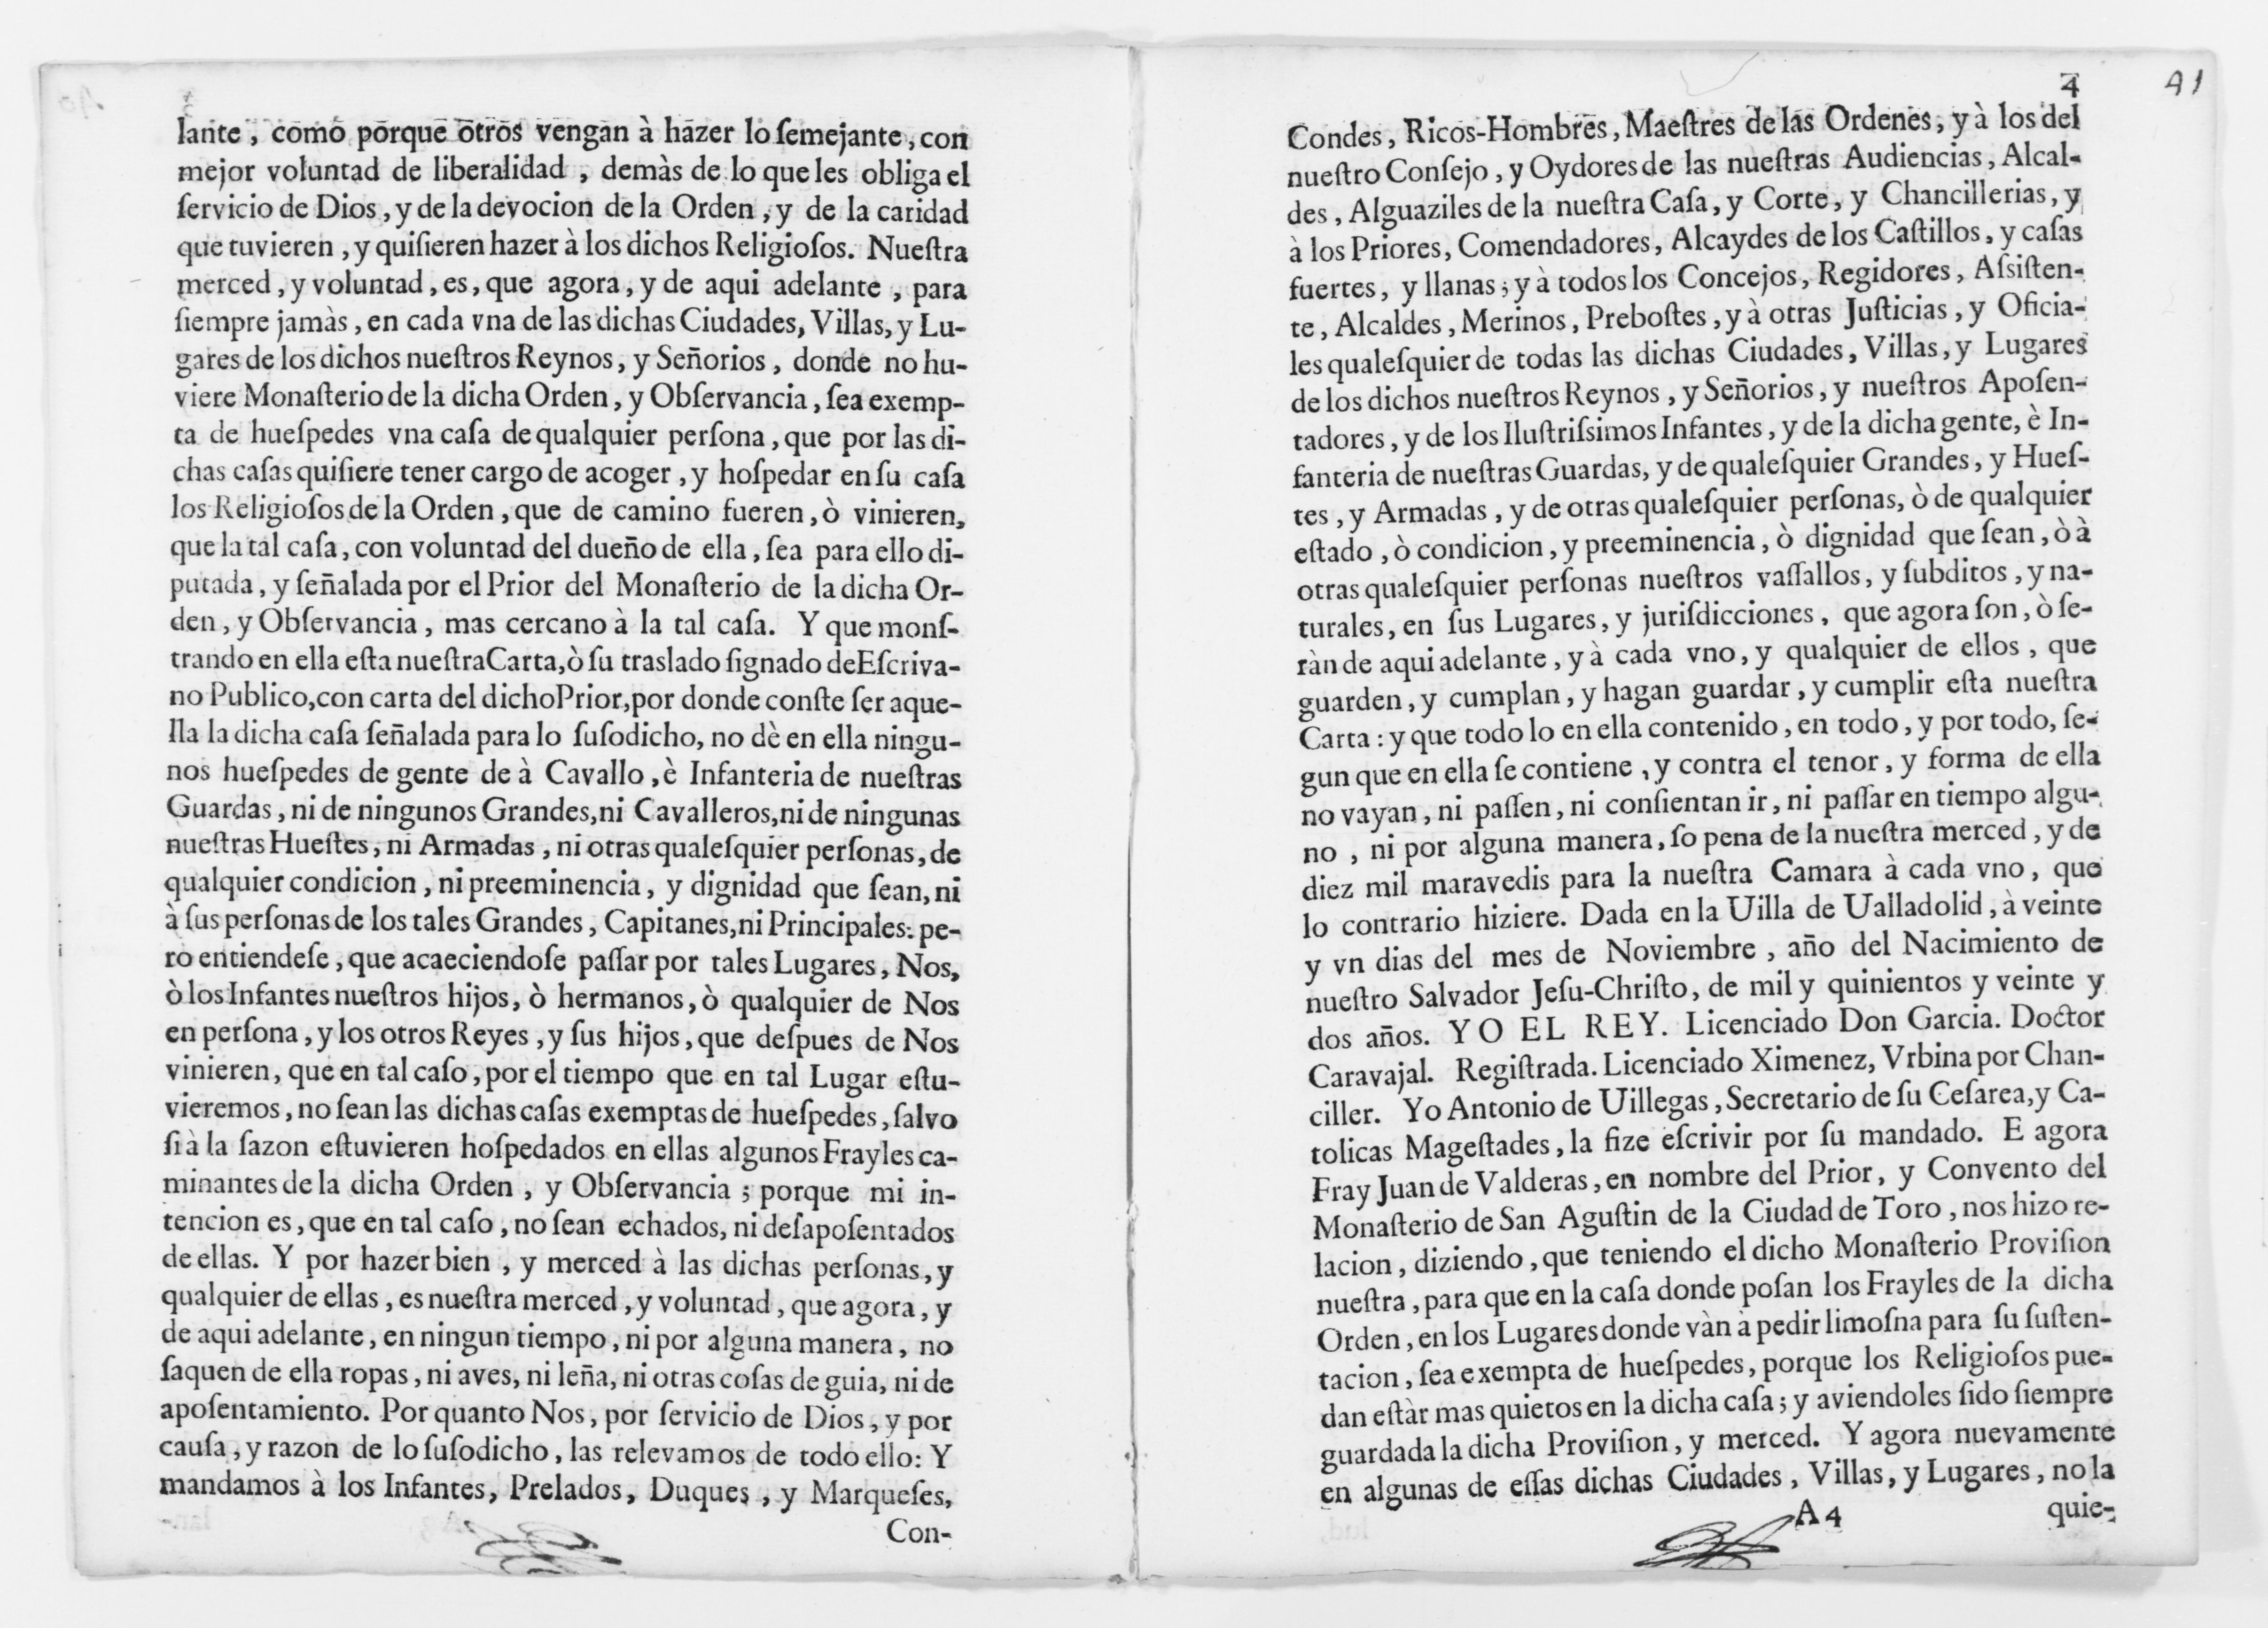 lante, como porque otros vengan à hazer lo ſemejante, con
mejor voluntad de liberalidad, demàs de lo que les obliga el
ſervicio de Dios, y de la devocion de la Orden, y de la caridad
que tuvieren, y quiſieren hazer à los dichos Religioſos. Nueſtra
merced, y voluntad, es, que agora, y de aqui adelante, para
ſiempre jamàs, en cada vna de las dichas Ciudades, Villas, y Lu-
gares de los dichos nueſtros Reynos, y Señorios, donde no hu-
viere Monaſterio de la dicha Orden, y Obſervancia, ſea exemp-
ta de hueſpedes vna caſa de qualquier perſona, que por las di-
chas caſas quiſiere tener cargo de acoger, y hoſpedar en ſu caſa
los Religioſos de la Orden, que de camino fueren, ò vinieren,
que la tal caſa, con voluntad del dueño de ella, ſea para ello di-
putada, y ſeñalada por el Prior del Monaſterio de la dicha Or-
den, y Obſervancia, mas cercano à la tal caſa. Y que monſ-
trando en ella eſta nueſtra Carta, ò ſu traslado ſignado de Eſcriva-
no Publico, con carta del dicho Prior, por donde conſte ſer aque-
lla la dicha caſa ſeñalada para lo ſuſodicho, no dè en ella ningu-
nos hueſpedes de gente de à Cavallo, è Infanteria de nueſtras
Guardas, ni de ningunos Grandes, ni Cavalleros, ni de ningunas
nueſtras Hueſtes, ni Armadas, ni otras qualeſquier perſonas, de
qualquier condicion, ni preeminencia, y dignidad que ſean, ni
à ſus perſonas de los tales Grandes, Capitanes, ni Principales: pe-
ro entiendeſe, que acaeciendoſe paſſar por tales Lugares, Nos,
ò los Infantes nueſtros hijos, ò hermanos, ò qualquier de Nos
en perſona, y los otros Reyes, y ſus hijos, que deſpues de Nos
vinieren, que en tal caſo, por el tiempo que en tal Lugar eſtu-
vieremos, no ſean las dichas caſas exemptas de hueſpedes, ſalvo
ſi à la ſazon eſtuvieren hoſpedados en ellas algunos Frayles ca-
minantes de la dicha Orden, y Obſervancia; porque mi in-
tencion es, que en tal caſo, no ſean echados, ni deſapoſentados
de ellas. Y por hazer bien, y merced à las dichas perſonas, y
qualquier de ellas, es nueſtra merced, y voluntad, que agora, y
de aqui adelante, en ningun tiempo, ni por alguna manera, no
ſaquen de ella ropas, ni aves, ni leña, ni otras coſas de guia, ni de
apoſentamiento. Por quanto Nos, por ſervicio de Dios, y por
cauſa, y razon de lo ſuſodicho, las relevamos de todo ello: Y
mandamos à los Infantes, Prelados, Duques, y Marqueſes,
Con-
4
41
Condes, Ricos-Hombres, Maeſtres de las Ordenes, y à los del
nueſtro Conſejo, y Oydores de las nueſtras Audiencias, Alcal-
des, Alguaziles de la nueſtra Caſa, y Corte, y Chancillerias, y
à los Priores, Comendadores, Alcaydes de los Caſtillos, y caſas
fuertes, y llanas; y à todos los Concejos, Regidores, Aſsiſten-
te, Alcaldes, Merinos, Preboſtes, y à otras Juſticias, y Oficia-
les qualeſquier de todas las dichas Ciudades, Villas, y Lugares
de los dichos nueſtros Reynos, y Señorios, y nueſtros Apoſen-
tadores, y de los Iluſtriſsimos Infantes, y de la dicha gente, è In-
fanteria de nueſtras Guardas, y de qualeſquier Grandes, y Hueſ-
tes, y Armadas, y de otras qualeſquier perſonas, ò de qualquier
eſtado, ò condicion, y preeminencia, ò dignidad que ſean, ò à
otras qualeſquier perſonas nueſtros vaſſallos, y ſubditos, y na-
turales, en ſus Lugares, y juriſdicciones, que agora ſon, ò ſe-
ràn de aqui adelante, y à cada vno, y qualquier de ellos, que
guarden, y cumplan, y hagan guardar, y cumplir eſta nueſtra
Carta: y que todo lo en ella contenido, en todo, y por todo, ſe-
gun que en ella ſe contiene, y contra el tenor, y forma de ella
no vayan, ni paſſen, ni conſientan ir, ni paſſar en tiempo algu-
no, ni por alguna manera, ſo pena de la nueſtra merced, y de
diez mil maravedis para la nueſtra Camara à cada vno, que
lo contrario hiziere. Dada en la Uilla de Ualladolid, à veinte
y vn dias del mes de Noviembre, año del Nacimiento de
nueſtro Salvador Jeſu-Chriſto, de mil y quinientos y veinte y
dos años. YO EL REY. Licenciado Don Garcia. Doctor
Caravajal. Regiſtrada. Licenciado Ximenez, Vrbina por Chan-
ciller. Yo Antonio de Uillegas, Secretario de ſu Ceſarea, y Ca-
tolicas Mageſtades, la fize eſcrivir por ſu mandado. E agora
Fray Juan de Valderas, en nombre del Prior, y Convento del
Monaſterio de San Aguſtin de la Ciudad de Toro, nos hizo re-
lacion, diziendo, que teniendo el dicho Monaſterio Proviſion
nueſtra, para que en la caſa donde poſan los Frayles de la dicha
Orden, en los Lugares donde vàn à pedir limoſna para ſu ſuſten-
tacion, ſea exempta de hueſpedes, porque los Religioſos pue-
dan eſtàr mas quietos en la dicha caſa; y aviendoles ſido ſiempre
guardada la dicha Proviſion, y merced. Y agora nuevamente
en algunas de eſſas dichas Ciudades, Villas, y Lugares, no la
A 4 quie-